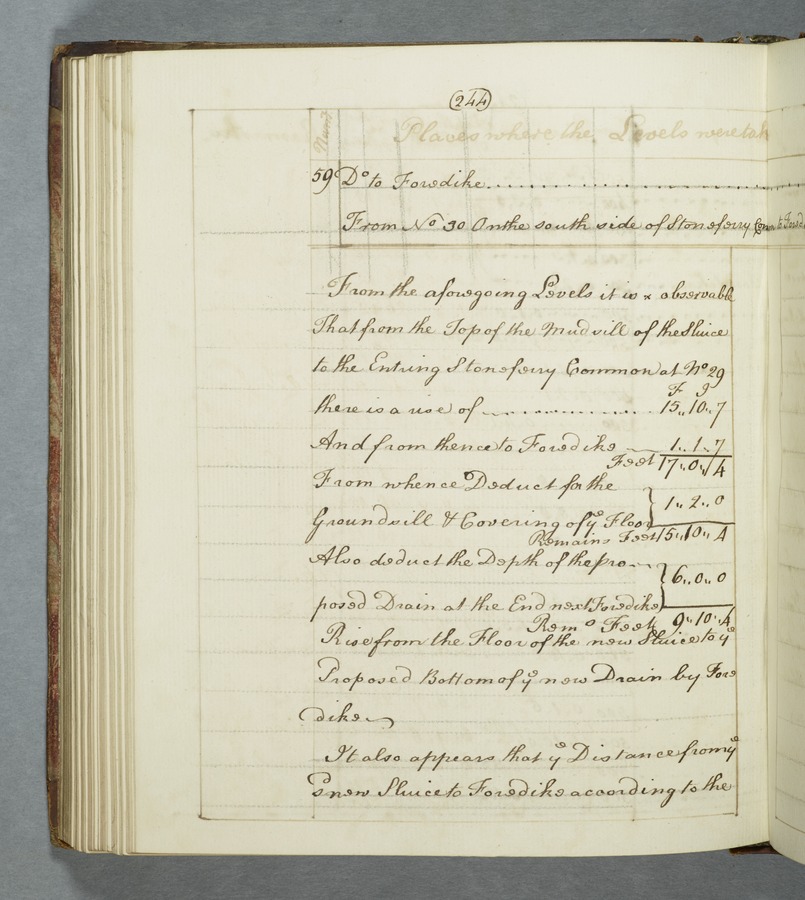 244
Numb
Places where the Levels were tak
59 Do to Foredike
From No 30 On the south side of Stoneferry Com to Fored
From the aforegoing Levels it is x observable
That from the Top of the Mudsill of the Sluice
to the Entring Stoneferry Common at No 29
F I
there is a rise of 15,, 10,, 7
And from thence to Foredike 1,, 1,, 7
Feet 17,, 0,, 4
From whence Deduct for the
Groundsill & Covering of ye Floor } 1,, 2,, 0
Remains Feet 15,, 10,, 4
Also deduct the Depth of the pro
posed Drain at the End next Foredike } 6,, 0,, 0
Remo Feet 9,, 10,, 4
Rise from the Floor of the new Sluice to ye
Proposed Bottom of ye new Drain by Fore
dike
It also appears that ye Distance from ye
new Sluice to Foredike according to the